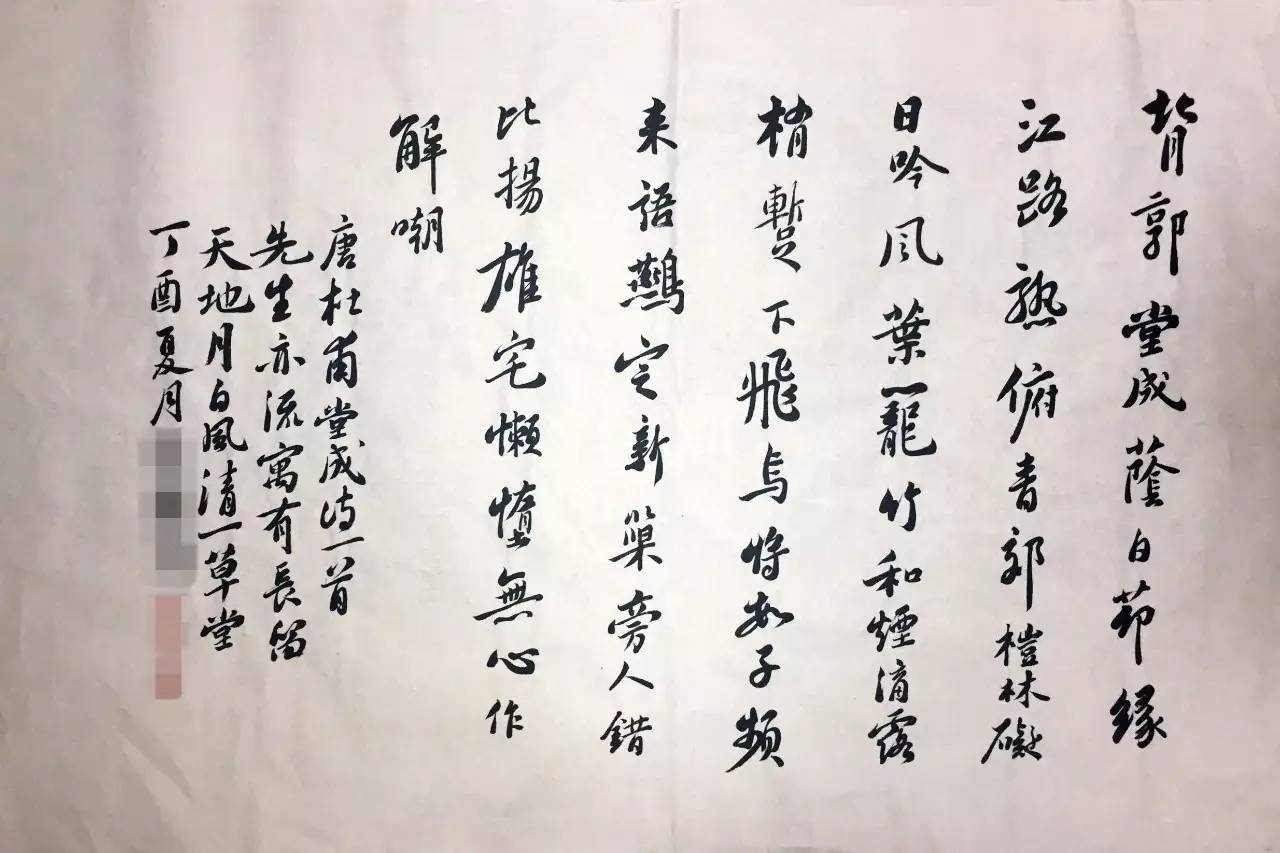 背郭堂成蔭白茆緣
江路熟俯青郊榿林礙
日吟風葉籠竹和煙滴露
梢暫下飛烏將數子頻
来語鷰定新巢旁人錯
比揚雄宅懶惰無心作
解嘲
唐杜甫堂成詩一首
先生亦流寓有長留
天地月白風清一草堂
丁酉夏月